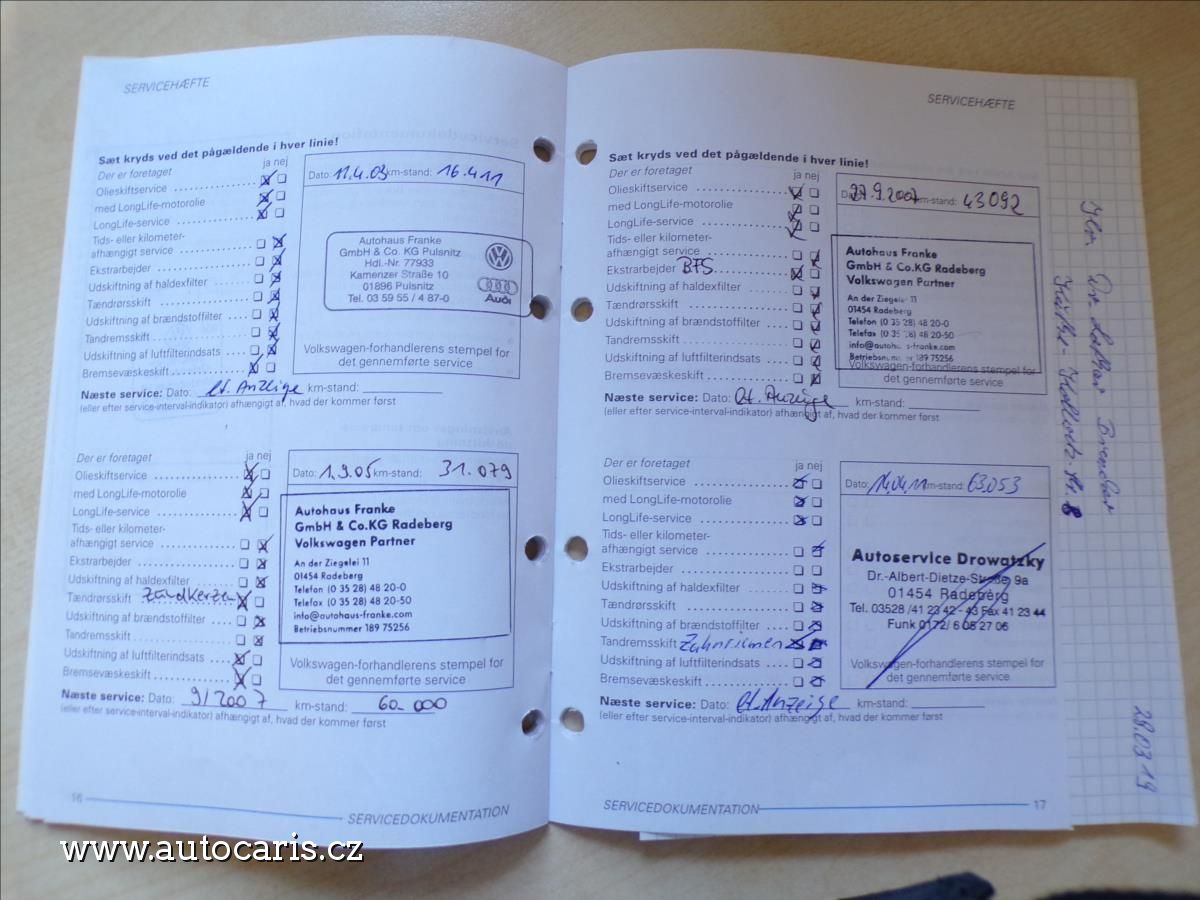 SERVICEHÆFTE
Sæt kryds ved det pågældende i hver linie!
Der er foretaget ja nej
Olieskiftservice
med LongLife-motorolie
LongLife-service
Tids- eller kilometer-
afhængigt service
Ekstrarbejder
Udskiftning af haldexfilter
Tændrørsskift
Udskiftning af brændstoffilter
Tandremsskift
Udskiftning af luftfilterindsats
Bremsevæskeskift
Dato: 11.4.03 km-stand: 16.411
Autohaus Franke
GmbH & Co. KG Pulsnitz
Hdl.-Nr. 77933
Kamenzer Straße 10
01896 Pulsnitz
Tel. 03 59 55 / 4 87-0
Audi
Volkswagen-forhandlerens stempel for
det gennemførte service
Næste service: Dato: lt. Anzeige km-stand:
(eller efter service-interval-indikator) afhængigt af, hvad der kommer først
Der er foretaget ja nej
Olieskiftservice
med LongLife-motorolie
LongLife-service
Tids- eller kilometer-
afhængigt service
Ekstrarbejder
Udskiftning af haldexfilter
Tændrørsskift Zündkerzen
Udskiftning af brændstoffilter
Tandremsskift
Udskiftning af luftfilterindsats
Bremsevæskeskift
Dato: 1.9.05 km-stand: 31.079
Autohaus Franke
GmbH & Co.KG Radeberg
Volkswagen Partner
An der Ziegelei 11
01454 Radeberg
Telefon (0 35 28) 48 20-0
Telefax (0 35 28) 48 20-50
info@autohaus-franke.com
Betriebsnummer 189 75256
Volkswagen-forhandlerens stempel for
det gennemførte service
Næste service: Dato: 9/2007 km-stand: 60.000
(eller efter service-interval-indikator) afhængigt af, hvad der kommer først
16 SERVICEDOKUMENTATION
SERVICEHÆFTE
Sæt kryds ved det pågældende i hver linie!
Der er foretaget ja nej
Olieskiftservice
med LongLife-motorolie
LongLife-service
Tids- eller kilometer-
afhængigt service
Ekstrarbejder BFS
Udskiftning af haldexfilter
Tændrørsskift
Udskiftning af brændstoffilter
Tandremsskift
Udskiftning af luftfilterindsats
Bremsevæskeskift
27.9.2007 km-stand: 43092
Autohaus Franke
GmbH & Co.KG Radeberg
Volkswagen Partner
An der Ziegelei 11
01454 Radeberg
Telefon (0 35 28) 48 20-0
Telefax (0 35 28) 48 20-50
info@autohaus-franke.com
Betriebsnummer 189 75256
Volkswagen-forhandlerens stempel for
det gennemførte service
Næste service: Dato: lt. Anzeige km-stand:
(eller efter service-interval-indikator) afhængigt af, hvad der kommer først
Der er foretaget ja nej
Olieskiftservice
med LongLife-motorolie
LongLife-service
Tids- eller kilometer-
afhængigt service
Ekstrarbejder
Udskiftning af haldexfilter
Tændrørsskift
Udskiftning af brændstoffilter
Tandremsskift Zahnriemen
Udskiftning af luftfilterindsats
Bremsevæskeskift
Dato: 14.04.11 km-stand: 63.053
Autoservice Drowatzky
Dr.-Albert-Dietze-Straße 9a
01454 Radeberg
Tel. 03528 /41 23 42 - 43 Fax 41 23 44
Funk 0172/ 6 08 27 06
Volkswagen-forhandlerens stempel for
det gennemførte service
Næste service: Dato: lt. Anzeige km-stand:
(eller efter service-interval-indikator) afhængigt af, hvad der kommer først
SERVICEDOKUMENTATION 17
Dr. Lothar
Käthe Kollwitz Str. 8
28.03.19
www.autocaris.cz